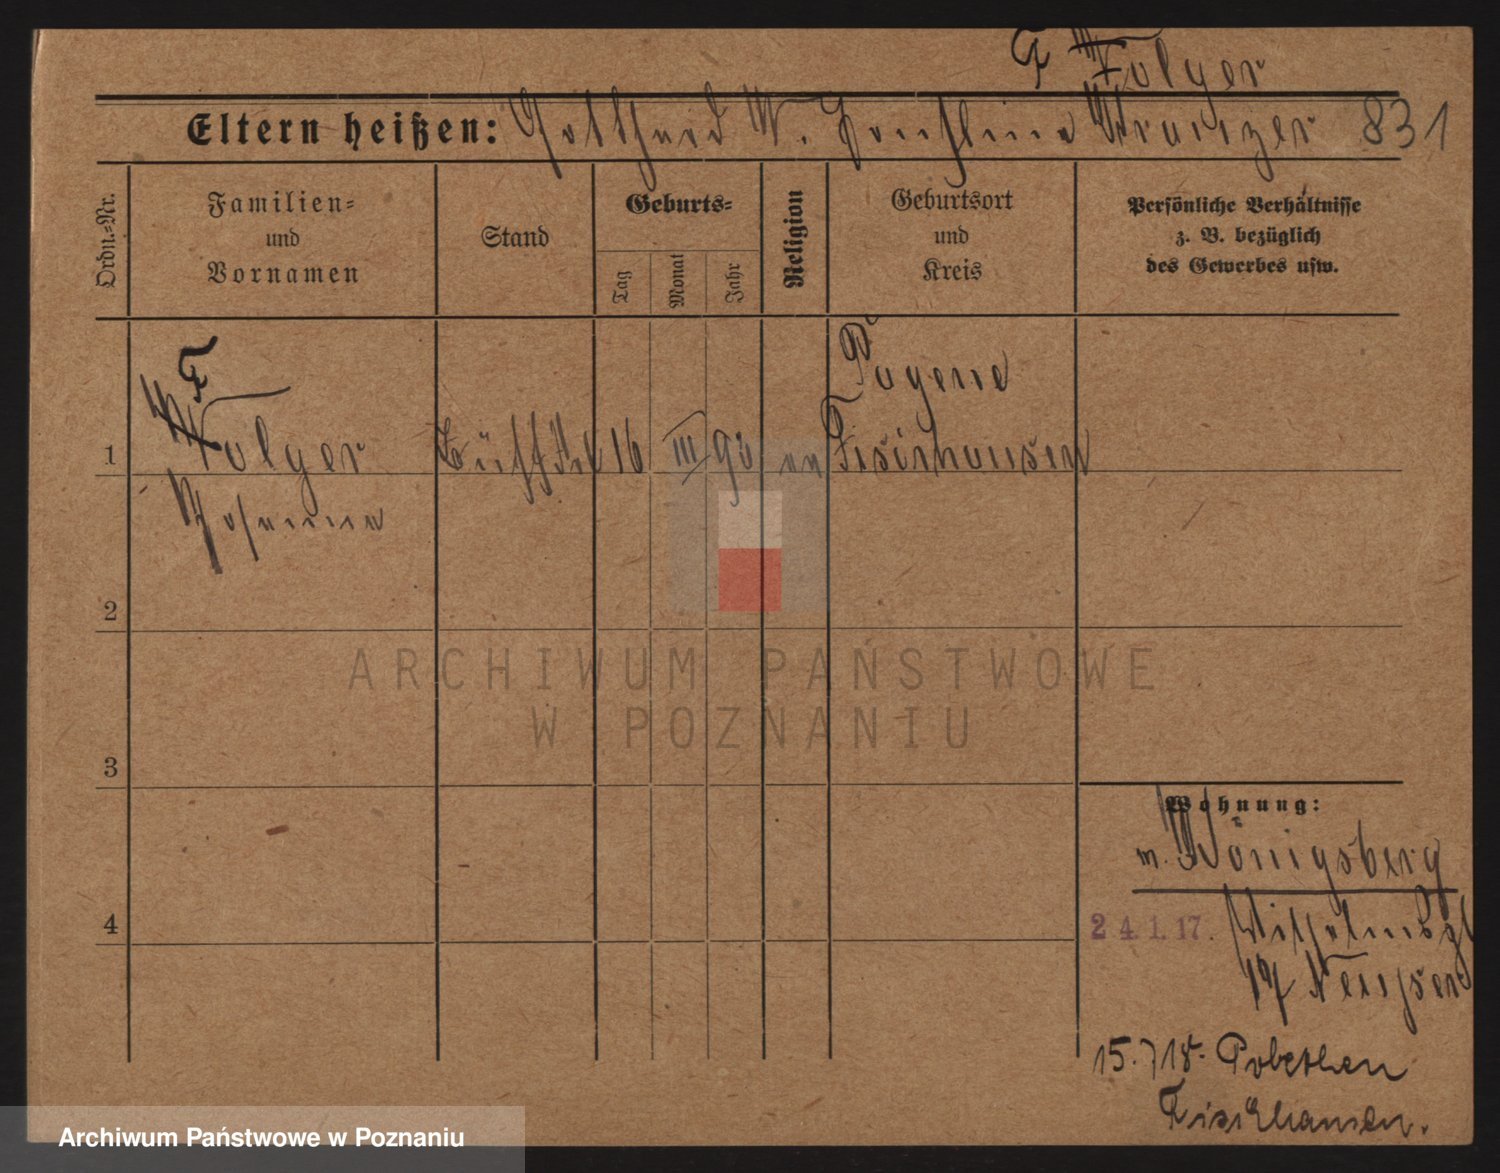 F Folger
Eltern heißen: Gotthard W. Kranzer 831
Ordn.=Nr.
Familien=
und
Vornamen
Stand
Geburts=
Tag
Monat
Jahr
Religion
Geburtsort
und
Kreis
Persönliche Verhältnisse
z. B. bezüglich
des Gewerbes usw.
F
Pogene
1 Folger Büfftfrl 16 III 93 Fischhausen
Johanna
2
ARCHIWUM PAŃSTWOWE
W POZNANIU
3
Wohnung:
n. Königsberg
4 24.1.17. Wilhelmspl
17
15.718. Pobethen
Fischhausen.
Archiwum Państwowe w Poznaniu